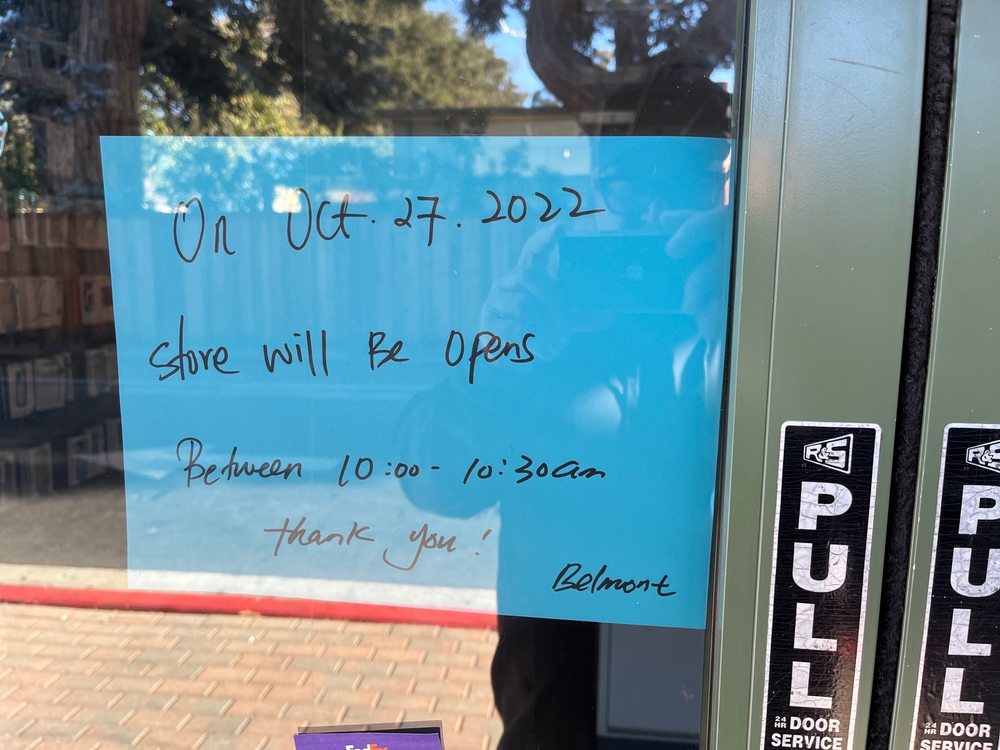 On Oct. 27. 2022
Store will Be Opens
Between 10:00 - 10:30am
thank you!
Belmont
R&S
PULL
24 HR DOOR
SERVICE
R&S
PULL
24 HR DOOR
SERVICE
FedEx